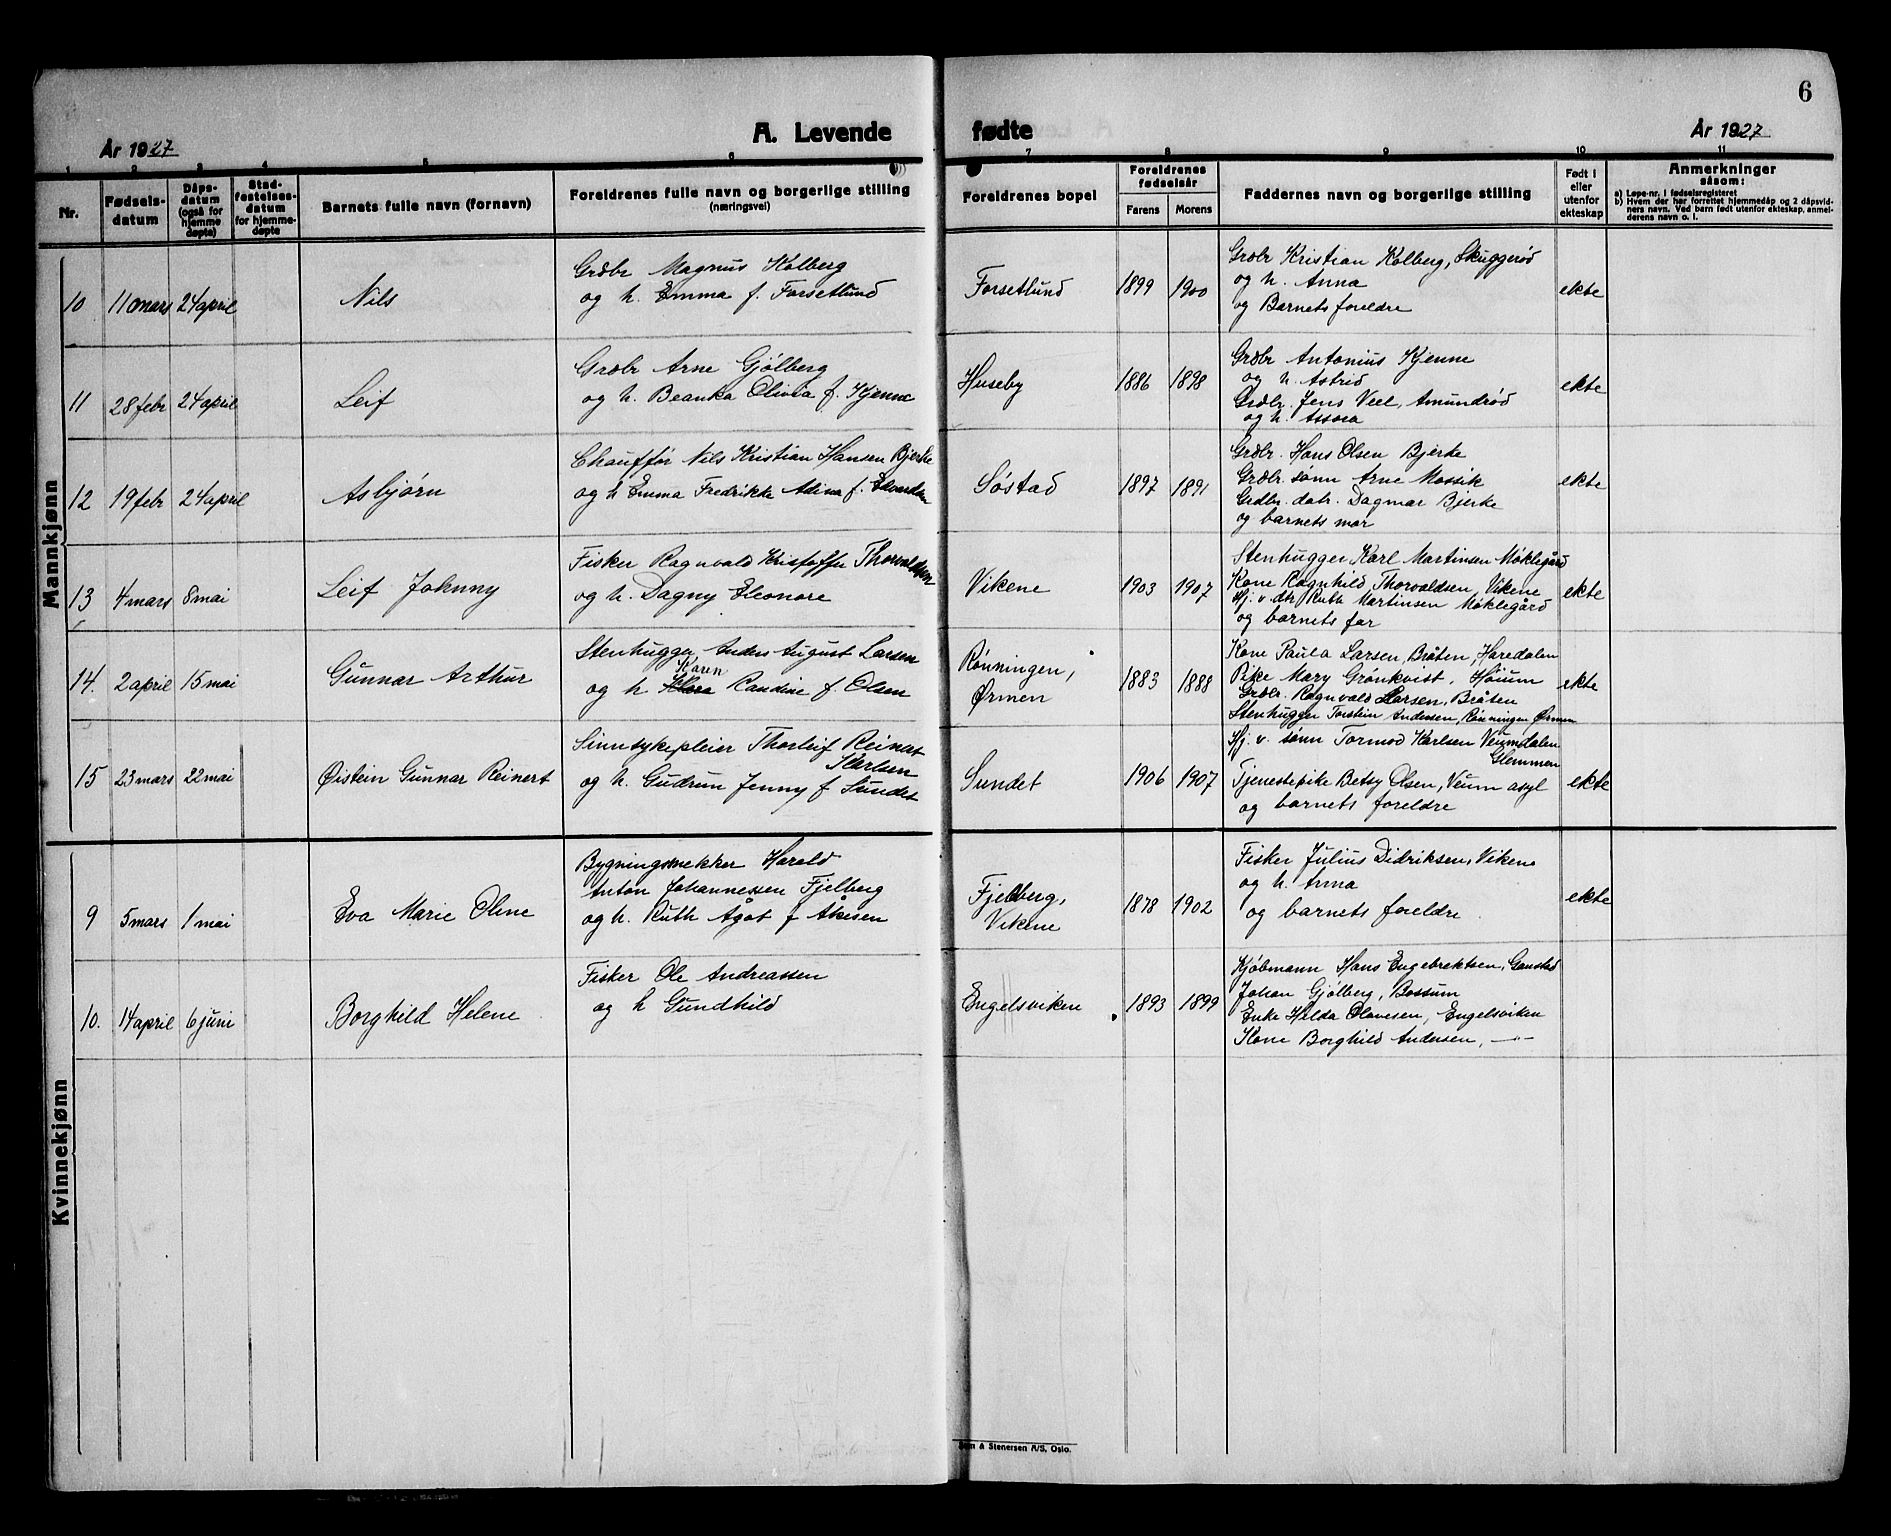 6
År 1927
A. Levende fødte
År 1927
1 2 3 4 5 6 7 8 9 10 11
Nr.
Fødselsdatum
Dåpsdatum (også for hjemmedøpte)
Stadfestelsesdatum for hjemmedøpte
Barnets fulle navn (fornavn)
Foreldrenes fulle navn og borgerlige stilling
(næringsvei)
Foreldrenes bopel
Foreldrenes fødselsår
Farens Morens
Faddernes navn og borgerlige stilling
Født i eller utenfor ekteskap
Anmerkninger
såsom:
a) Løpe-nr. i fødselsregisteret
b) Hvem der har forrettet hjemmedåp og 2 dåpsvidners navn. Ved barn født utenfor ekteskap, anmelderens navn o. l.
Mannkjønn
10 11 mars 24 april Nils
Grdbr Magnus Kolberg
og h. Emma f. Forsetlund
Forsetlund 1899 1900
Grdbr Kristian Kolberg, Skuggerød
og h. Anna
og Barnets foreldre
ekte
11 28 febr 24 april Leif
Grdbr Arne Gjølberg
og h. Beanka Olivia f. Kjenne
Huseby 1886 1898
Grdbr Antonius Kjenne
og h. Astrid
Grdbr. Jens Veel, Amundrød
og h. Assora
ekte
12 19 febr 24 april Asbjørn
Chauffør Nils Kristian Hansen Bjerke
og h Emma Fredrikke Adina f.
Søstad 1897 1891
Grdbr. Hans Olsen Bjerke
Grdbr. sønn Arne Mossik
Grdbr. datr. Dagmar Bjerke
og barnets mor
ekte
13 4 mars 8 mai Leif Johnny
Fisker Ragnvald Kristoffer Thorvaldsen
og h. Dagny Eleonore
Vikene 1903 1907
Stenhugger Karl Martinsen Møklegård
Kone Ragnhild Thorvaldsen, Vikene
Hj. v. dtr Ruth Martinsen Møklegård
og barnets far
ekte
14. 2 april 15 mai Gunnar Arthur
Stenhugger Anders August Larsen
Karen
og h Randine f. Olsen
Rønningen,
Ørmen
1883 1888
Kone Paula Larsen, Bråten, Haredalen
Pike Mary Grönkvist, Høium
Grdbr. Ragnvald Larsen, Bråten
Stenhugger Torstein Andersen, Rønningen Ørmen
ekte
15 23 mars 22 mai Øistein Gunnar Reinert
Sinnsykepleier Thorleif Reinat
Karlsen
og h. Gudrun Jenny f Sundet
Sundet 1906 1907
Hj. v. sønn Tormod Karlsen Veumdalen
Glemmen
Tjenestepike Betsy Olsen, Veum asyl
og barnets foreldre
ekte
Kvinnekjønn
9 5 mars 1 mai Eva Marie Oline
Bygningssnekker Harald
Anton Johannessen Fjelberg
og h. Ruth Ågot f Åkesen
Fjelberg,
Vikene
1878 1902
Fisker Julius Didriksen, Vikene
og h. Anna
og barnets foreldre
ekte
10. 14 april 6 juni Borghild Helene
Fisker Ole Andreassen
og h Gundhild
Engelsviken 1893 1899
Kjøbmann Hans Engebrektsen, Gansted
Johan Gjølberg, Bossum
Enke Hilda Olavesen, Engelsviken
Kone Borghild Andersen, —"—
Sem & Stenersen A/S, Oslo.